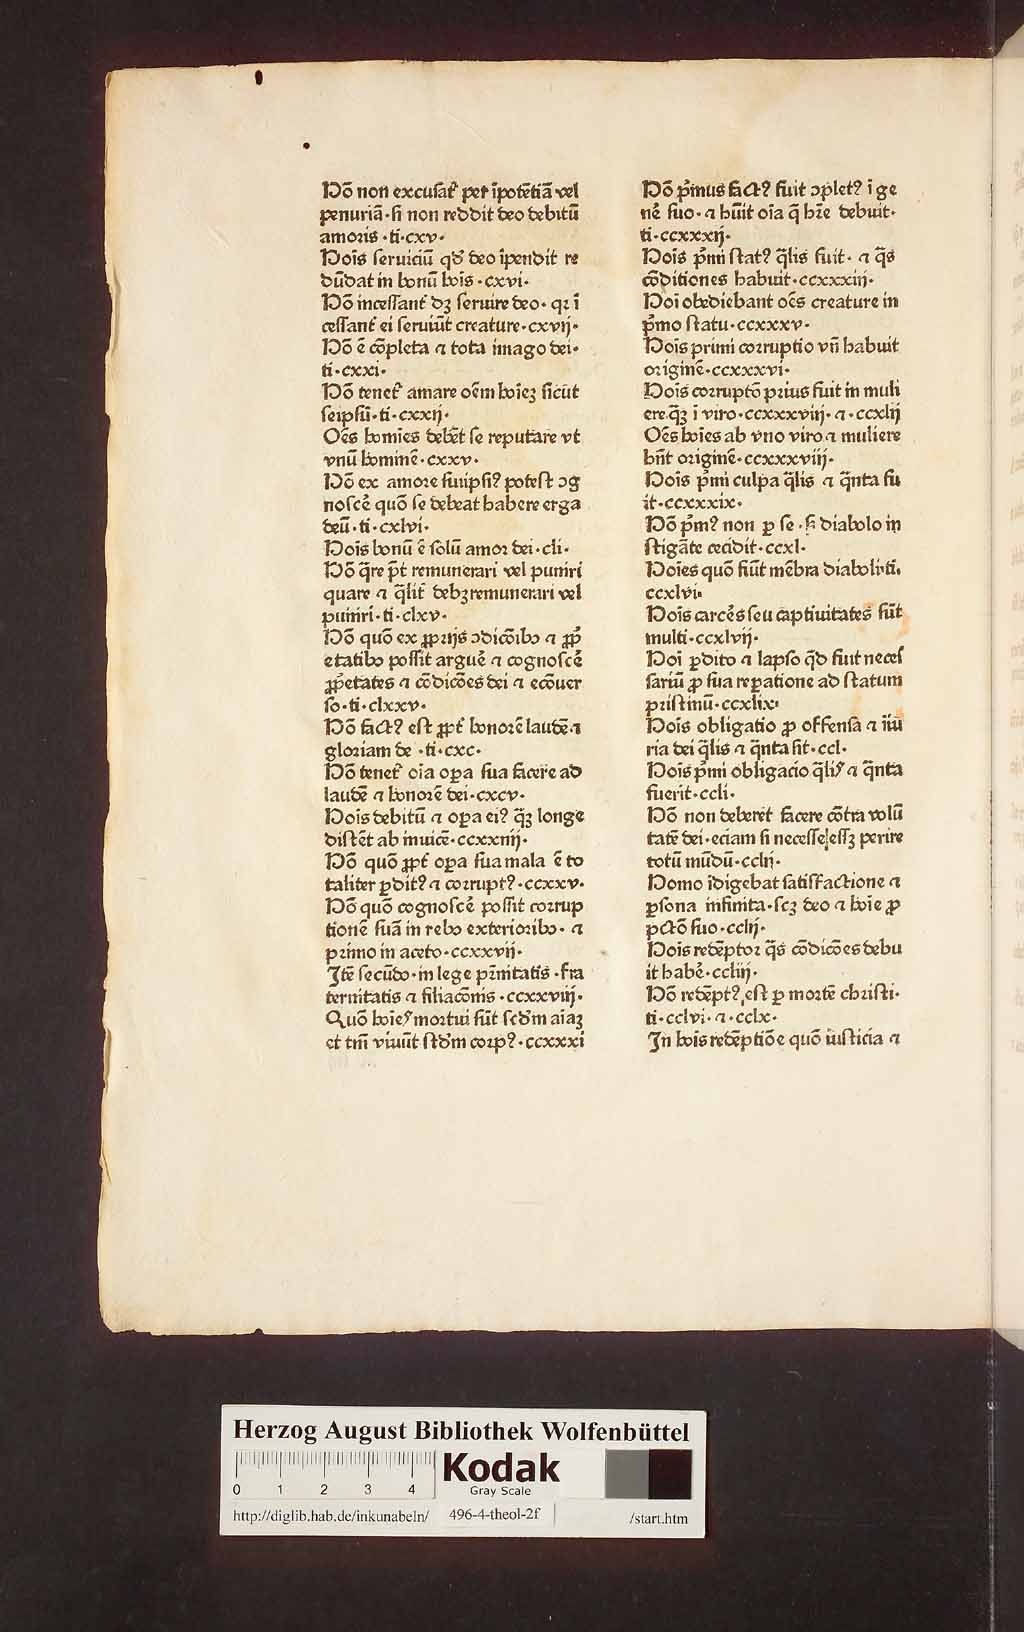 Hō non excusat᷑ per īpotētiā vel
penuriā · si non reddit deo debitū
amoris · ti · cxv ·
Hoīs seruiciū qď deo īpendit re
dūdat in bonū hoīs · cxvi ·
Hō incessant᷑ dꝫ seruire deo · qꝛ ī
cessant᷑ ei seruiūt creature · cxvij ·
Hō ē cōpleta ⁊ tota imago dei ·
ti · cxxi ·
Hō tenet᷑ amare oēm hoīeꝫ sicut
seipsū · ti · cxxij ·
Oēs homīes debēt se reputare vt
vnū hominē · cxxv ·
Hō ex amore suiipsiꝰ potest ꝯg
noscē quō se debeat habere erga
deū · ti · cxlvi ·
Hoīs bonū ē solū amoꝛ dei · cli ·
Hō q̄re p̄t remunerari vel puniri
quare ⁊ q̄lit᷑ debꝫ remunerari vel
puniri · ti · clxv ·
Hō quō ex ꝓprijs ꝯdicōibꝰ ⁊ ꝓp̄
etatibꝰ possit arguē ⁊ cognoscē
ꝓp̄etates ⁊ cōdicōes dei ⁊ ecōuer
so · ti · clxxv ·
Hō factꝰ est ꝓpt᷑ honorē laudē ⁊
gloriam de · ti · cxc ·
Hō tenet᷑ oīa oꝑa sua facere ad
laudē ⁊ honorē dei · cxcv ·
Hoīs debitū ⁊ oꝑa eiꝰ q̄ꝫ longe
distēt ab inuicē · ccxxiiij ·
Hō quō ꝓpt᷑ oꝑa sua mala ē to
taliter ꝑditꝰ ⁊ coꝛruptꝰ · ccxxv ·
Hō quō cognoscē possit coꝛrup
tionē suā in rebꝰ exterioribꝰ · ⁊
primo in aceto · ccxxvij ·
Itē secūdo · in lege pr̄nitatis · fra
ternitatis ⁊ filiacōnis · ccxxviij ·
Quō hoīes mortui sūt scďm aīaꝫ
et tm̄ viuūt scďm coꝛpꝰ · ccxxxi
Hō p̄mus factꝰ fuit ꝯpletꝰ ī ge
nē suo · ⁊ hūit oīa q̄ hr̄e debuit ·
ti · ccxxxij ·
Hoīs p̄mi statꝰ q̄lis fuit · ⁊ q̄s
cōditiones habuit · ccxxxiij ·
Hoī obediebant oēs creature in
p̄mo statu · ccxxxv ·
Hoīs primi coꝛruptio vn̄ habuit
oꝛiginē · ccxxxvi ·
Hoīs coꝛruptō pꝛius fuit in muli
ere q̄ꝫ ī viro · ccxxxviij · ⁊ · ccxlij
Oēs hoīes ab vno viro ⁊ muliere
hn̄t oꝛiginē · ccxxxviij ·
Hoīs p̄mi culpa q̄lis ⁊ q̄nta fu
it · ccxxxix ·
Hō p̄mꝰ non ꝑ se · sꝫ diabolo in
stigāte cecidit · ccxl ·
Hoīes quō fiūt mēbra diaboli · ti ·
ccxlvi ·
Hoīs carcēs seu captiuitates sūt
multi · ccxlvij ·
Hoī ꝑdito ⁊ lapso q̄d fuit neces
sariū ꝓ sua reꝑatione ad statum
pꝛistinū · ccxlix ·
Hoīs obligatio ꝓ offensa ⁊ iīu
ria dei q̄lis ⁊ q̄nta sit · ccl ·
Hoīs p̄mi obligacio q̄lis ⁊ q̄nta
fuerit · ccli ·
Hō non deberet facere cōtra volū
tatē dei · eciam si necesse essꝫ perire
totū mūdū · cclij ·
Homo īdigebat satisfactione ⁊
ꝑsona infinita · scꝫ deo ⁊ hoīe ꝓ
pctō suo · cclij ·
Hoīs redēptoꝛ q̄s cōdicōes debu
it habē · ccliij ·
Hō redēptꝰ est ꝑ mortē christi ·
ti · cclvi · ⁊ · cclx ·
In hoīs redēptiōe quō iusticia ⁊
Herzog August Bibliothek Wolfenbüttel
0 1 2 3 4
Kodak
Gray Scale
http://diglib.hab.de/inkunabeln/ 496-4-theol-2f /start.htm